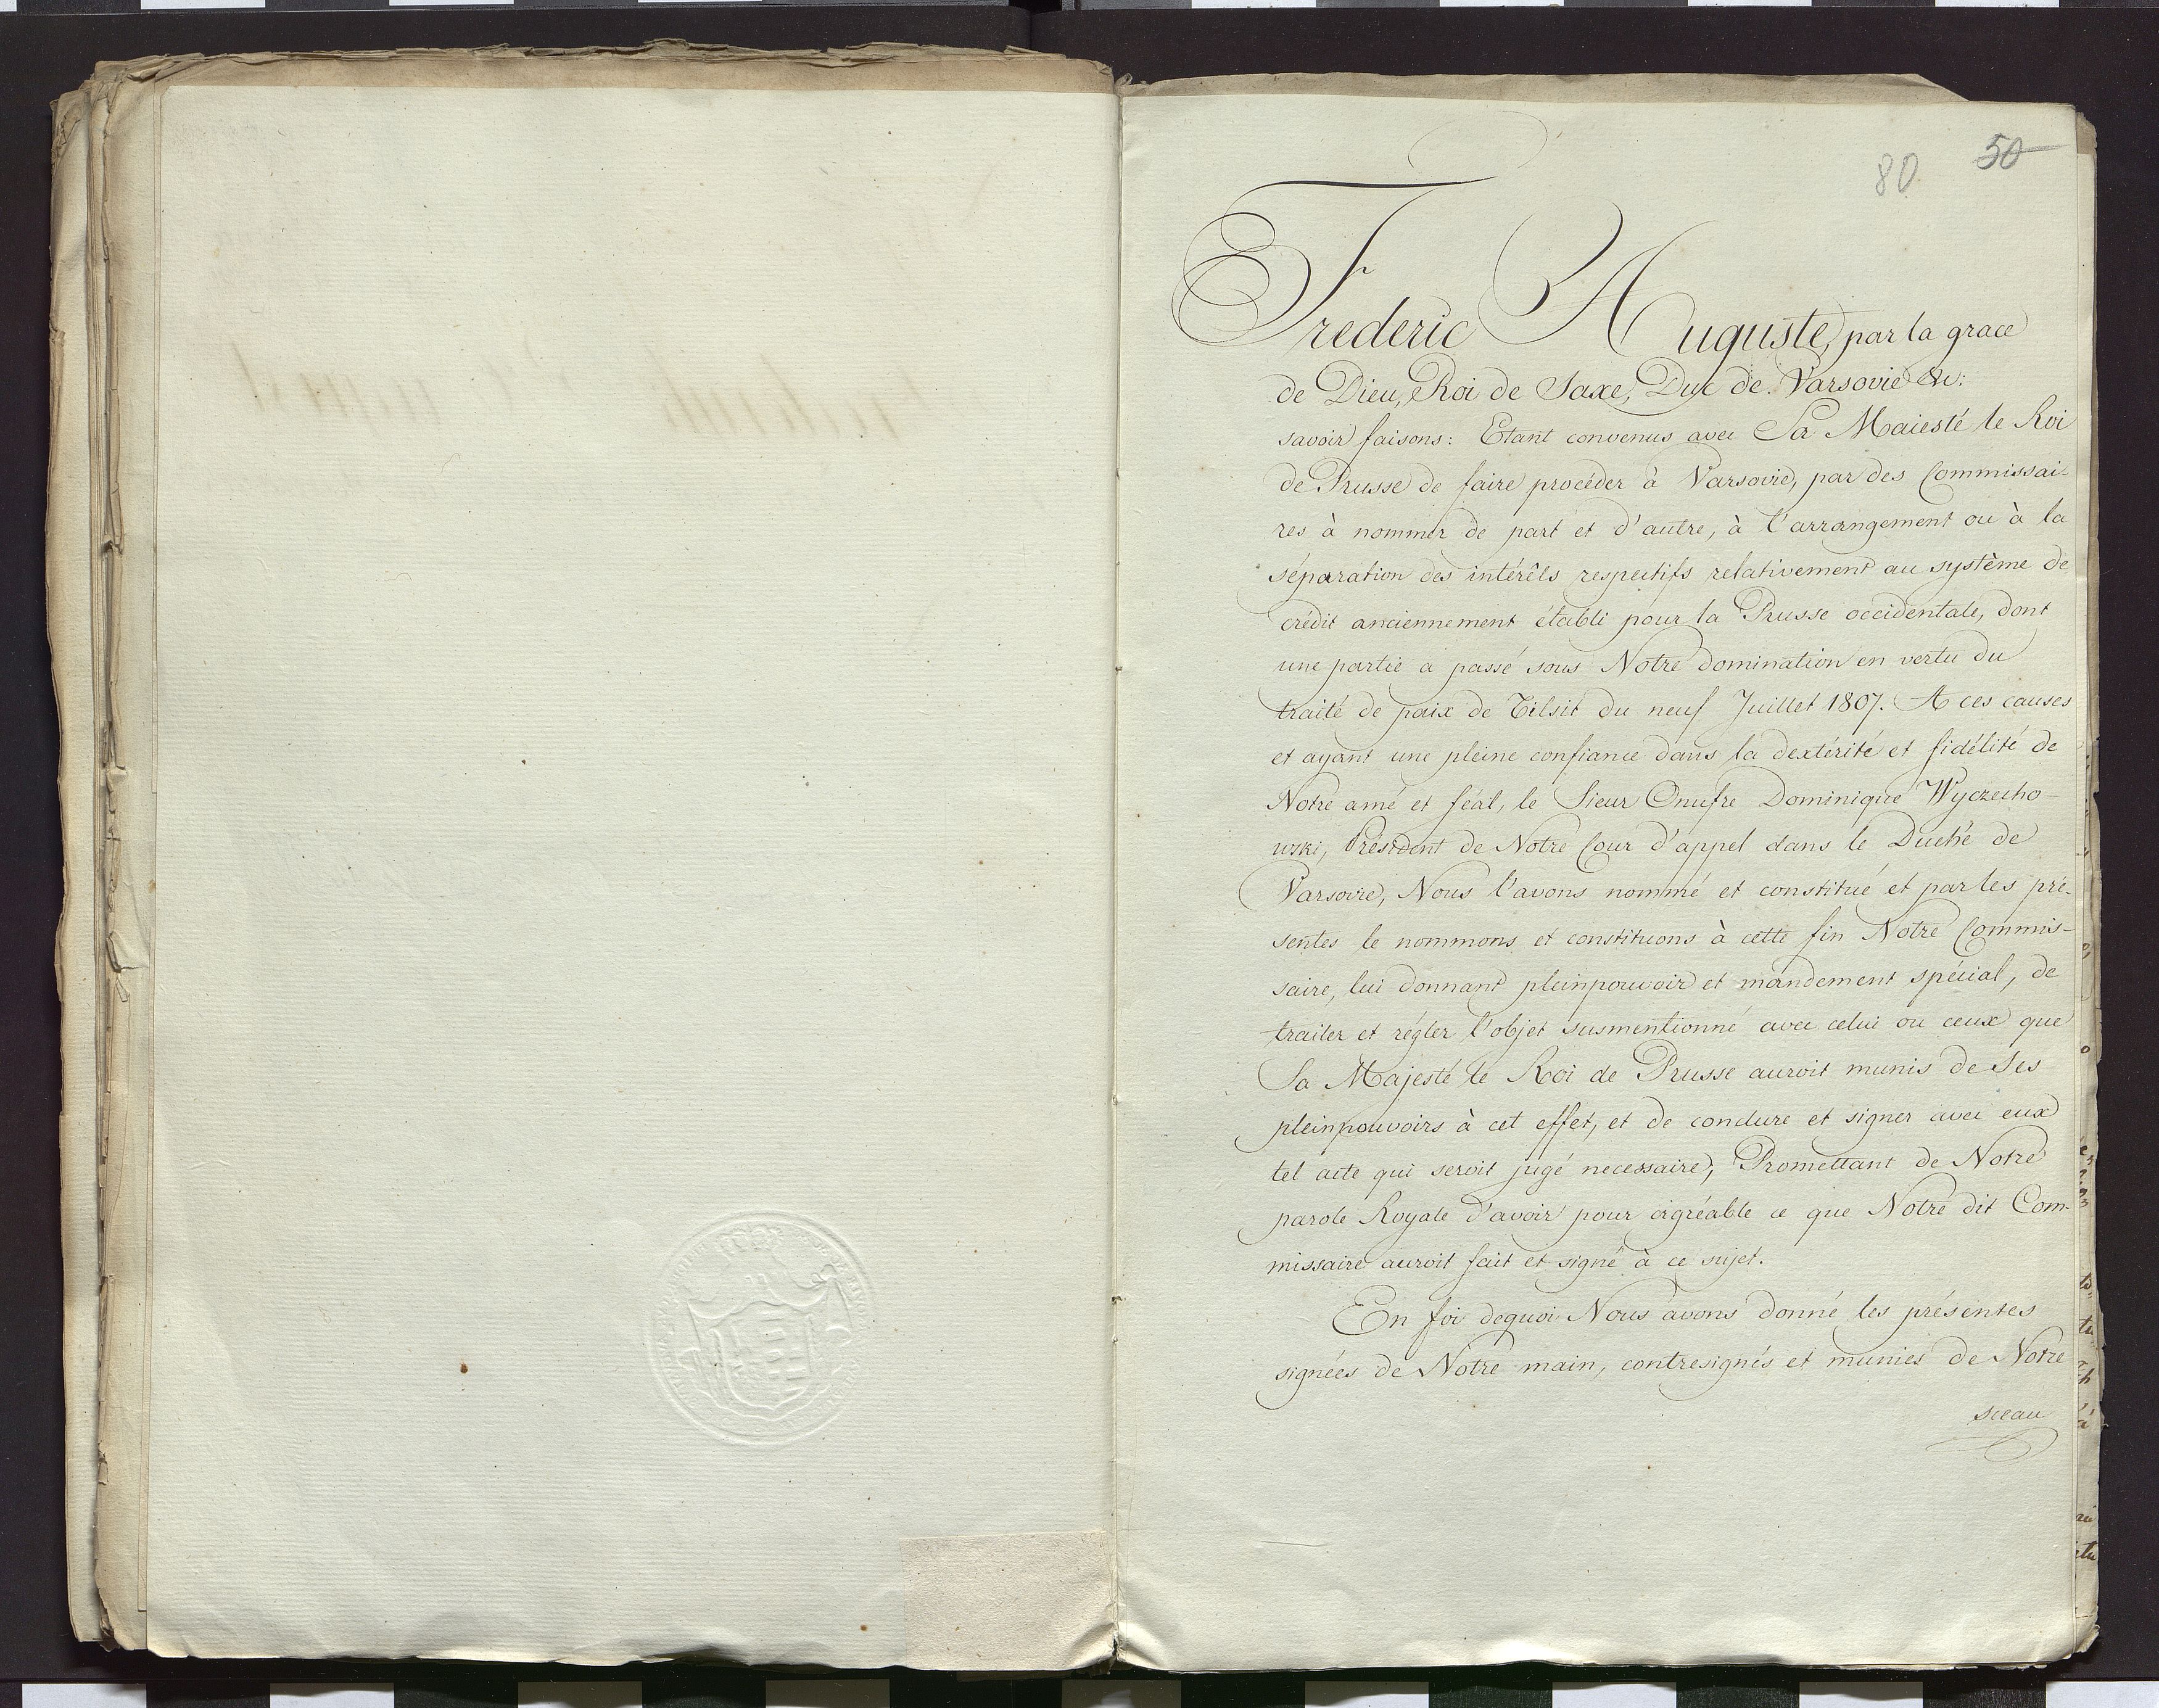 80. 50
Frederic Auguste, par la grace
de Dieu, Roi de Saxe, Duc de Varsovie &c:
savoir faisons: Etant convenus avec Sa Maiesté le Roi
de Prusse de faire procéder à Varsovie, par des Commissai-
res à nommer de part et d'autre, à l'arrangement ou à la
séparation des intérêts respectifs relativement au système de
crédit anciennement établi pour la Prusse occidentale, dont
une partie a passé sous Notre domination en vertu du
traité de paix de Tilsit du neuf Juillet 1807. A ces causes
et ayant une pleine confiance dans la dextérité et fidélité de
Notre amé et féal, le Sieur Onufre Dominique Wyczecho-
wski, Président de Notre Cour d'appel dans le Duché de
Varsovie, Nous l'avons nommé et constitué et par les pré-
sentes le nommons et constituons à cette fin Notre Commis-
saire, lui donnant pleinpouvoir et mandement spécial, de
traiter et régler l'objet susmentionné avec celui ou ceux que
Sa Majesté le Roi de Prusse auroit munis de Ses
pleinpouvoirs à cet effet, et de conclure et signer avec eux
tel acte qui seroit jugé necessaire; Promettant de Notre
parole Royale d'avoir pour agréable ce que Notre dit Com-
missaire auroit fait et signé à ce sujet.
En foi dequoi Nous avons donné les présentes
signées de Notre main, contresignés et munies de Notre
sceau